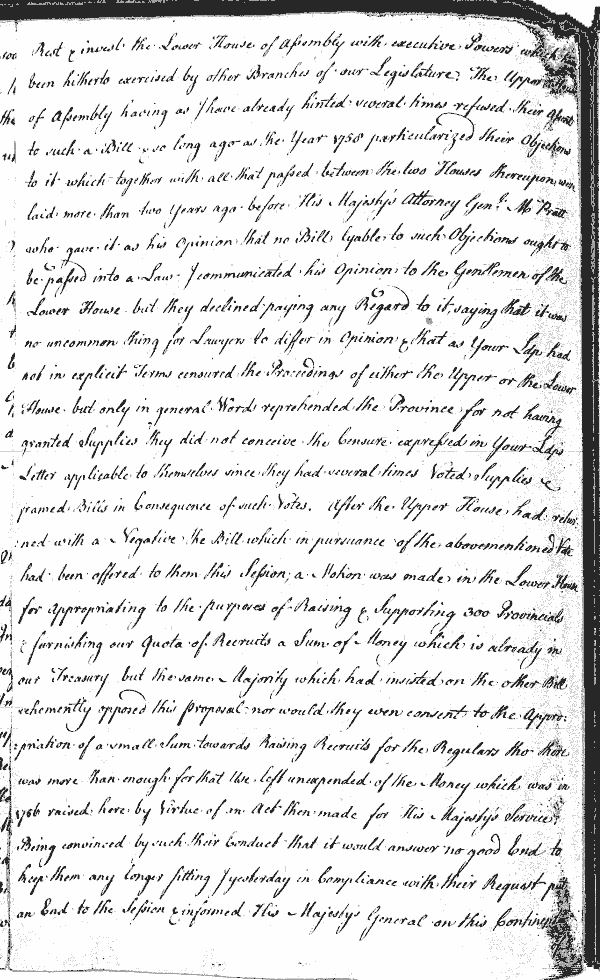 Rest & invest the Lower House of Assembly with executive Powers
been hitherto exercised by other Branches of our Legislature; The Upper House
of Assembly having as I have already hinted several times refused their Assent
to such a Bill & so long ago as the Year 1758 particularized their Objections
to it which together with all that passed between the two Houses thereupon were
laid more than two Years ago before His Majestys Attorney Genl. Mr Pratt
who gave it as his Opinion that no Bill lyable to such Objections ought to
be passed into a Law. I communicated his Opinion to the Gentlemen of the
Lower House but they declined paying any Regard to it, saying that it was
no uncommon thing for Lawyers to differ in Opinion & that as Your Ldp had
not in explicit Terms censured the Proceedings of either the Upper or the Lower
House but only in general Words reprehended the Province for not having
granted Supplies they did not conceive the Censure expressed in Your Ldps
Letter applicable to themselves since they had several times Voted Supplies &
framed Bills in Consequence of such Votes. After the Upper House had retur
:ned with a Negative the Bill which in pursuance of the abovementioned Vote
had been offered to them this Session, a Motion was made in the Lower House
for Appropriating to the purposes of Raising & Supporting 300 Provincials
& furnishing our Quota of Recruits a Sum of Money which is already in
our Treasury but the same Majority which had insisted on the other Bill
vehemently opposed this proposal nor would they even consent to the Appro:
:priation of a small Sum towards Raising Recruits for the Regulars tho there
was more than enough for that Use left unexpended of the Money which was in
1756 raised here by Virtue of an Act then made for His Majestys Service.
Being convinced by such their Conduct that it would answer no good End to
keep them any longer sitting I yesterday in Compliance with their Request put
an End to the Session & informed His Majestys General on this Continent